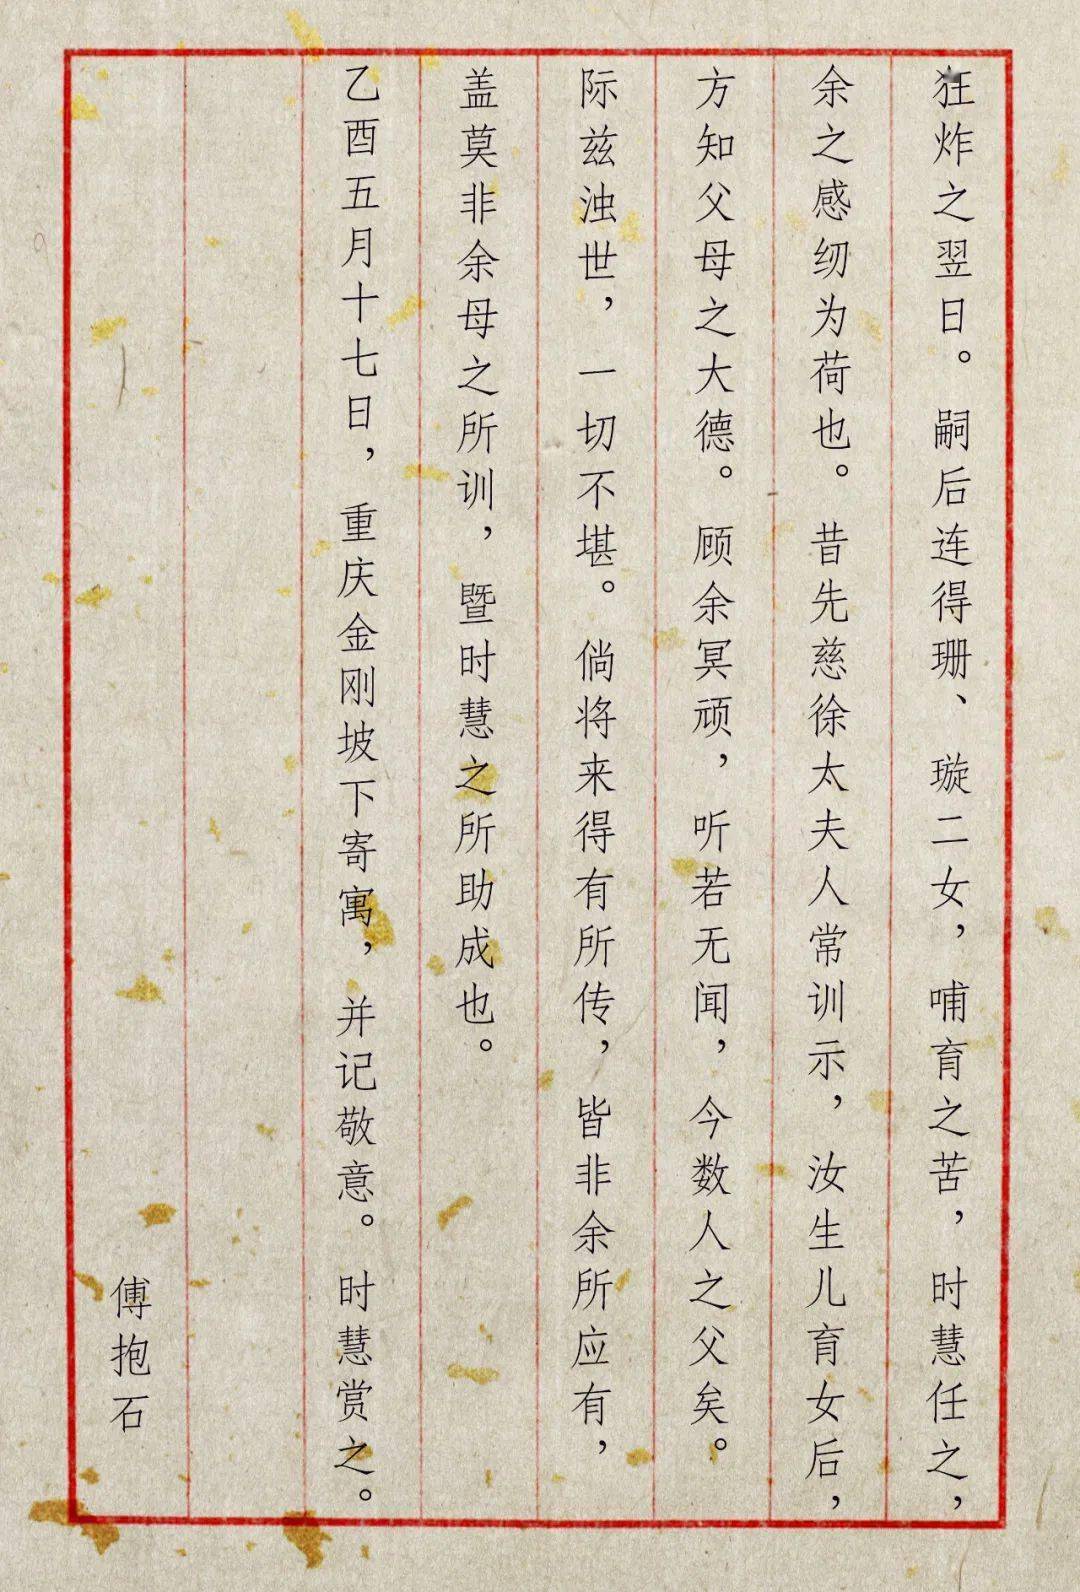 狂炸之翌日。嗣后连得珊、璇二女，哺育之苦，时慧任之，
余之感纫为荷也。昔先慈徐太夫人常训示，汝生儿育女后，
方知父母之大德。顾余冥顽，听若无闻，今数人之父矣。
际兹浊世，一切不堪。倘将来得有所传，皆非余所应有，
盖莫非余母之所训，暨时慧之所助成也。
乙酉五月十七日，重庆金刚坡下寄寓，并记敬意。时慧赏之。
傅抱石